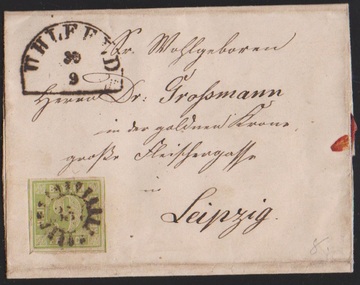 UHLFELD
30
9
Sr. Wohlgeboren
Herrn Dr: Großmann
in der goldnen Krone
große Fleischergasse
in
Leipzig.